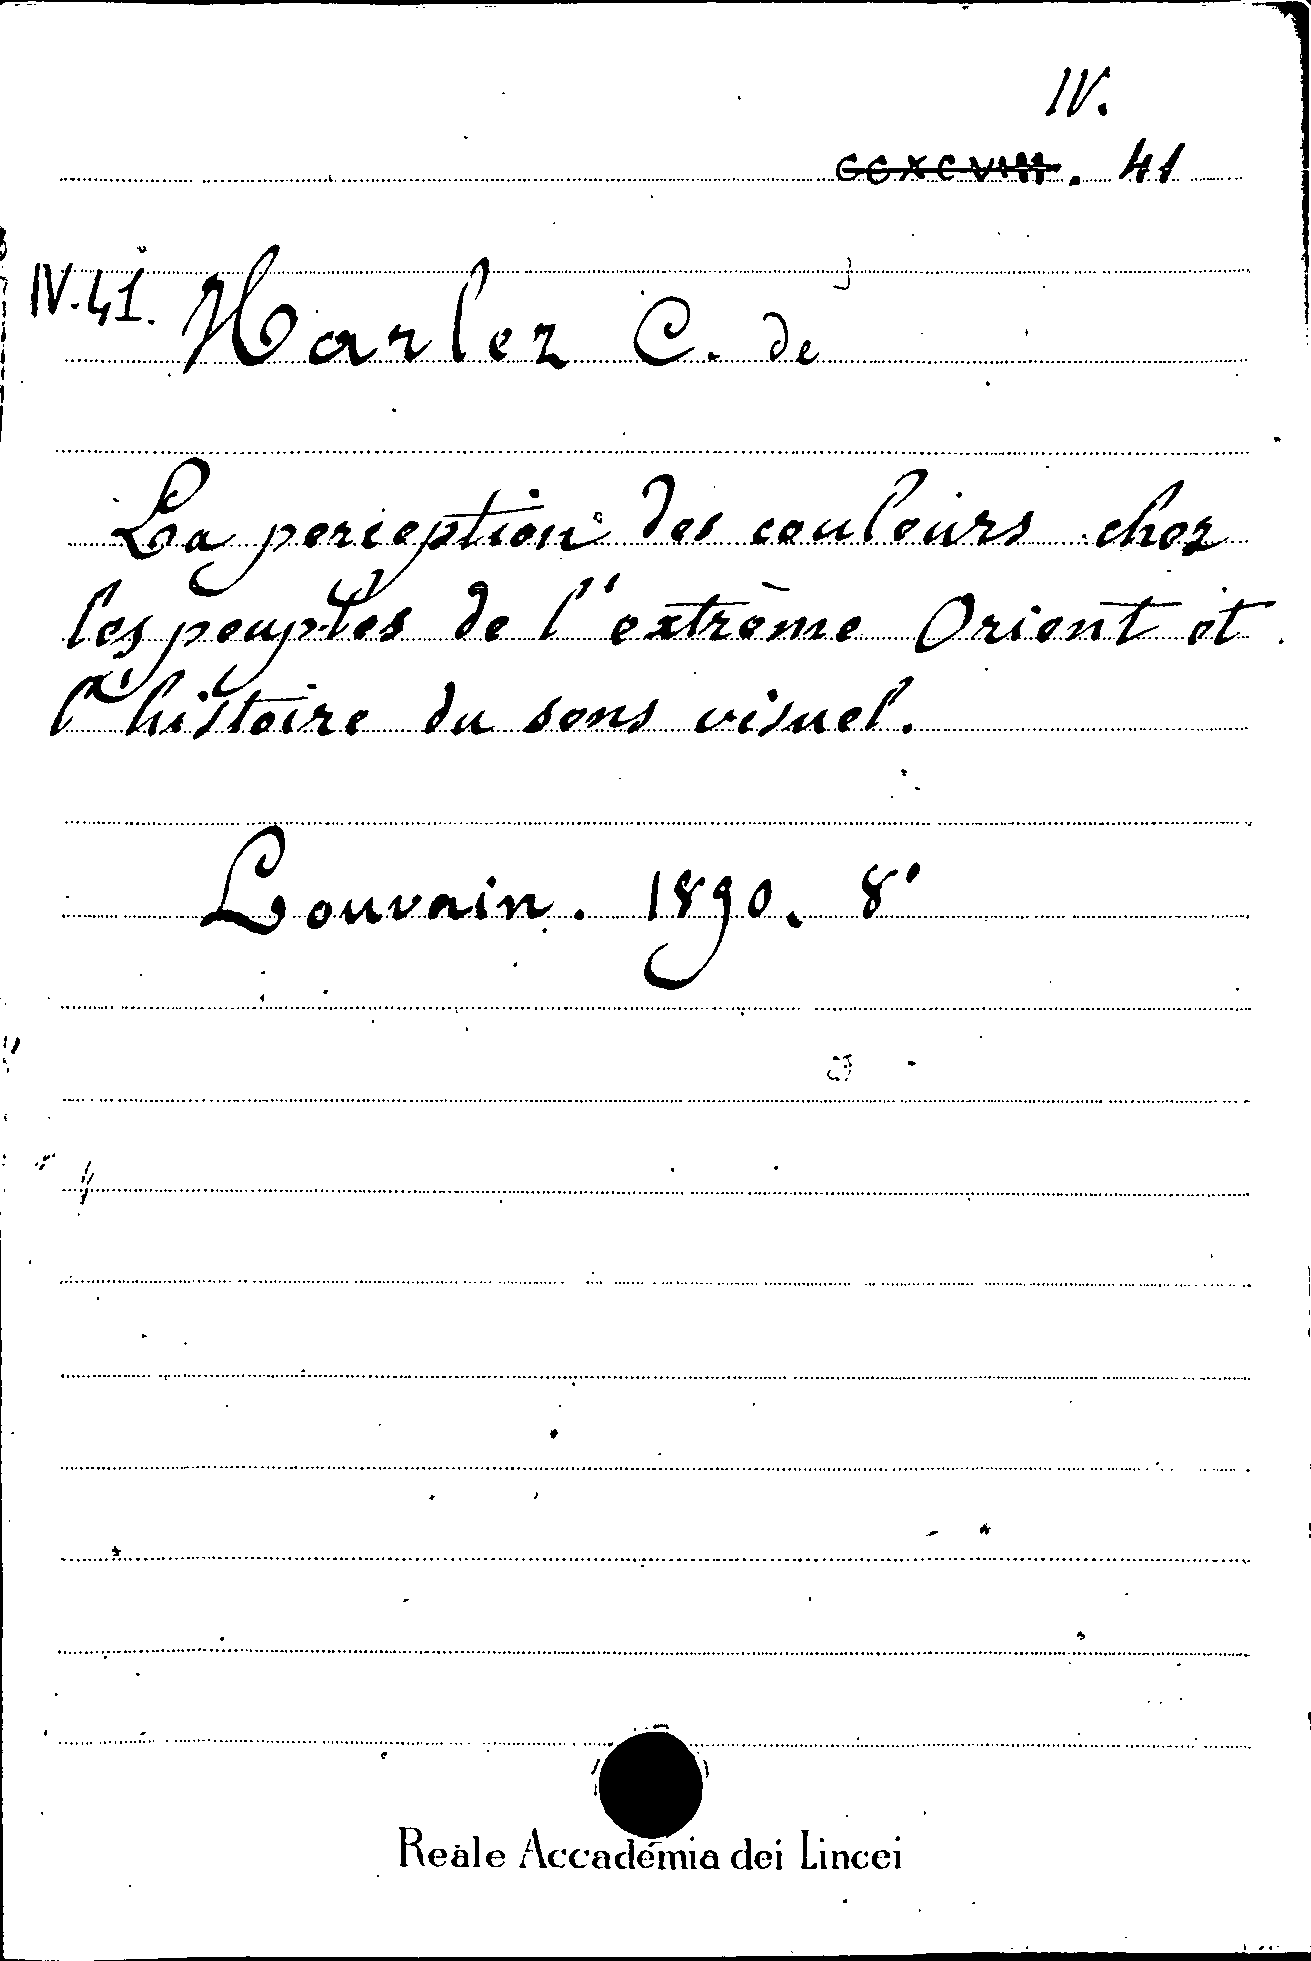 IV.
CCXCVIII. 41
IV.41. Harlez C. de
La perception des couleurs chez
les peuples de l'extrème Orient et
l'histoire du sens visuel.
Louvain. 1890. 8°
Reale Accademia dei Lincei